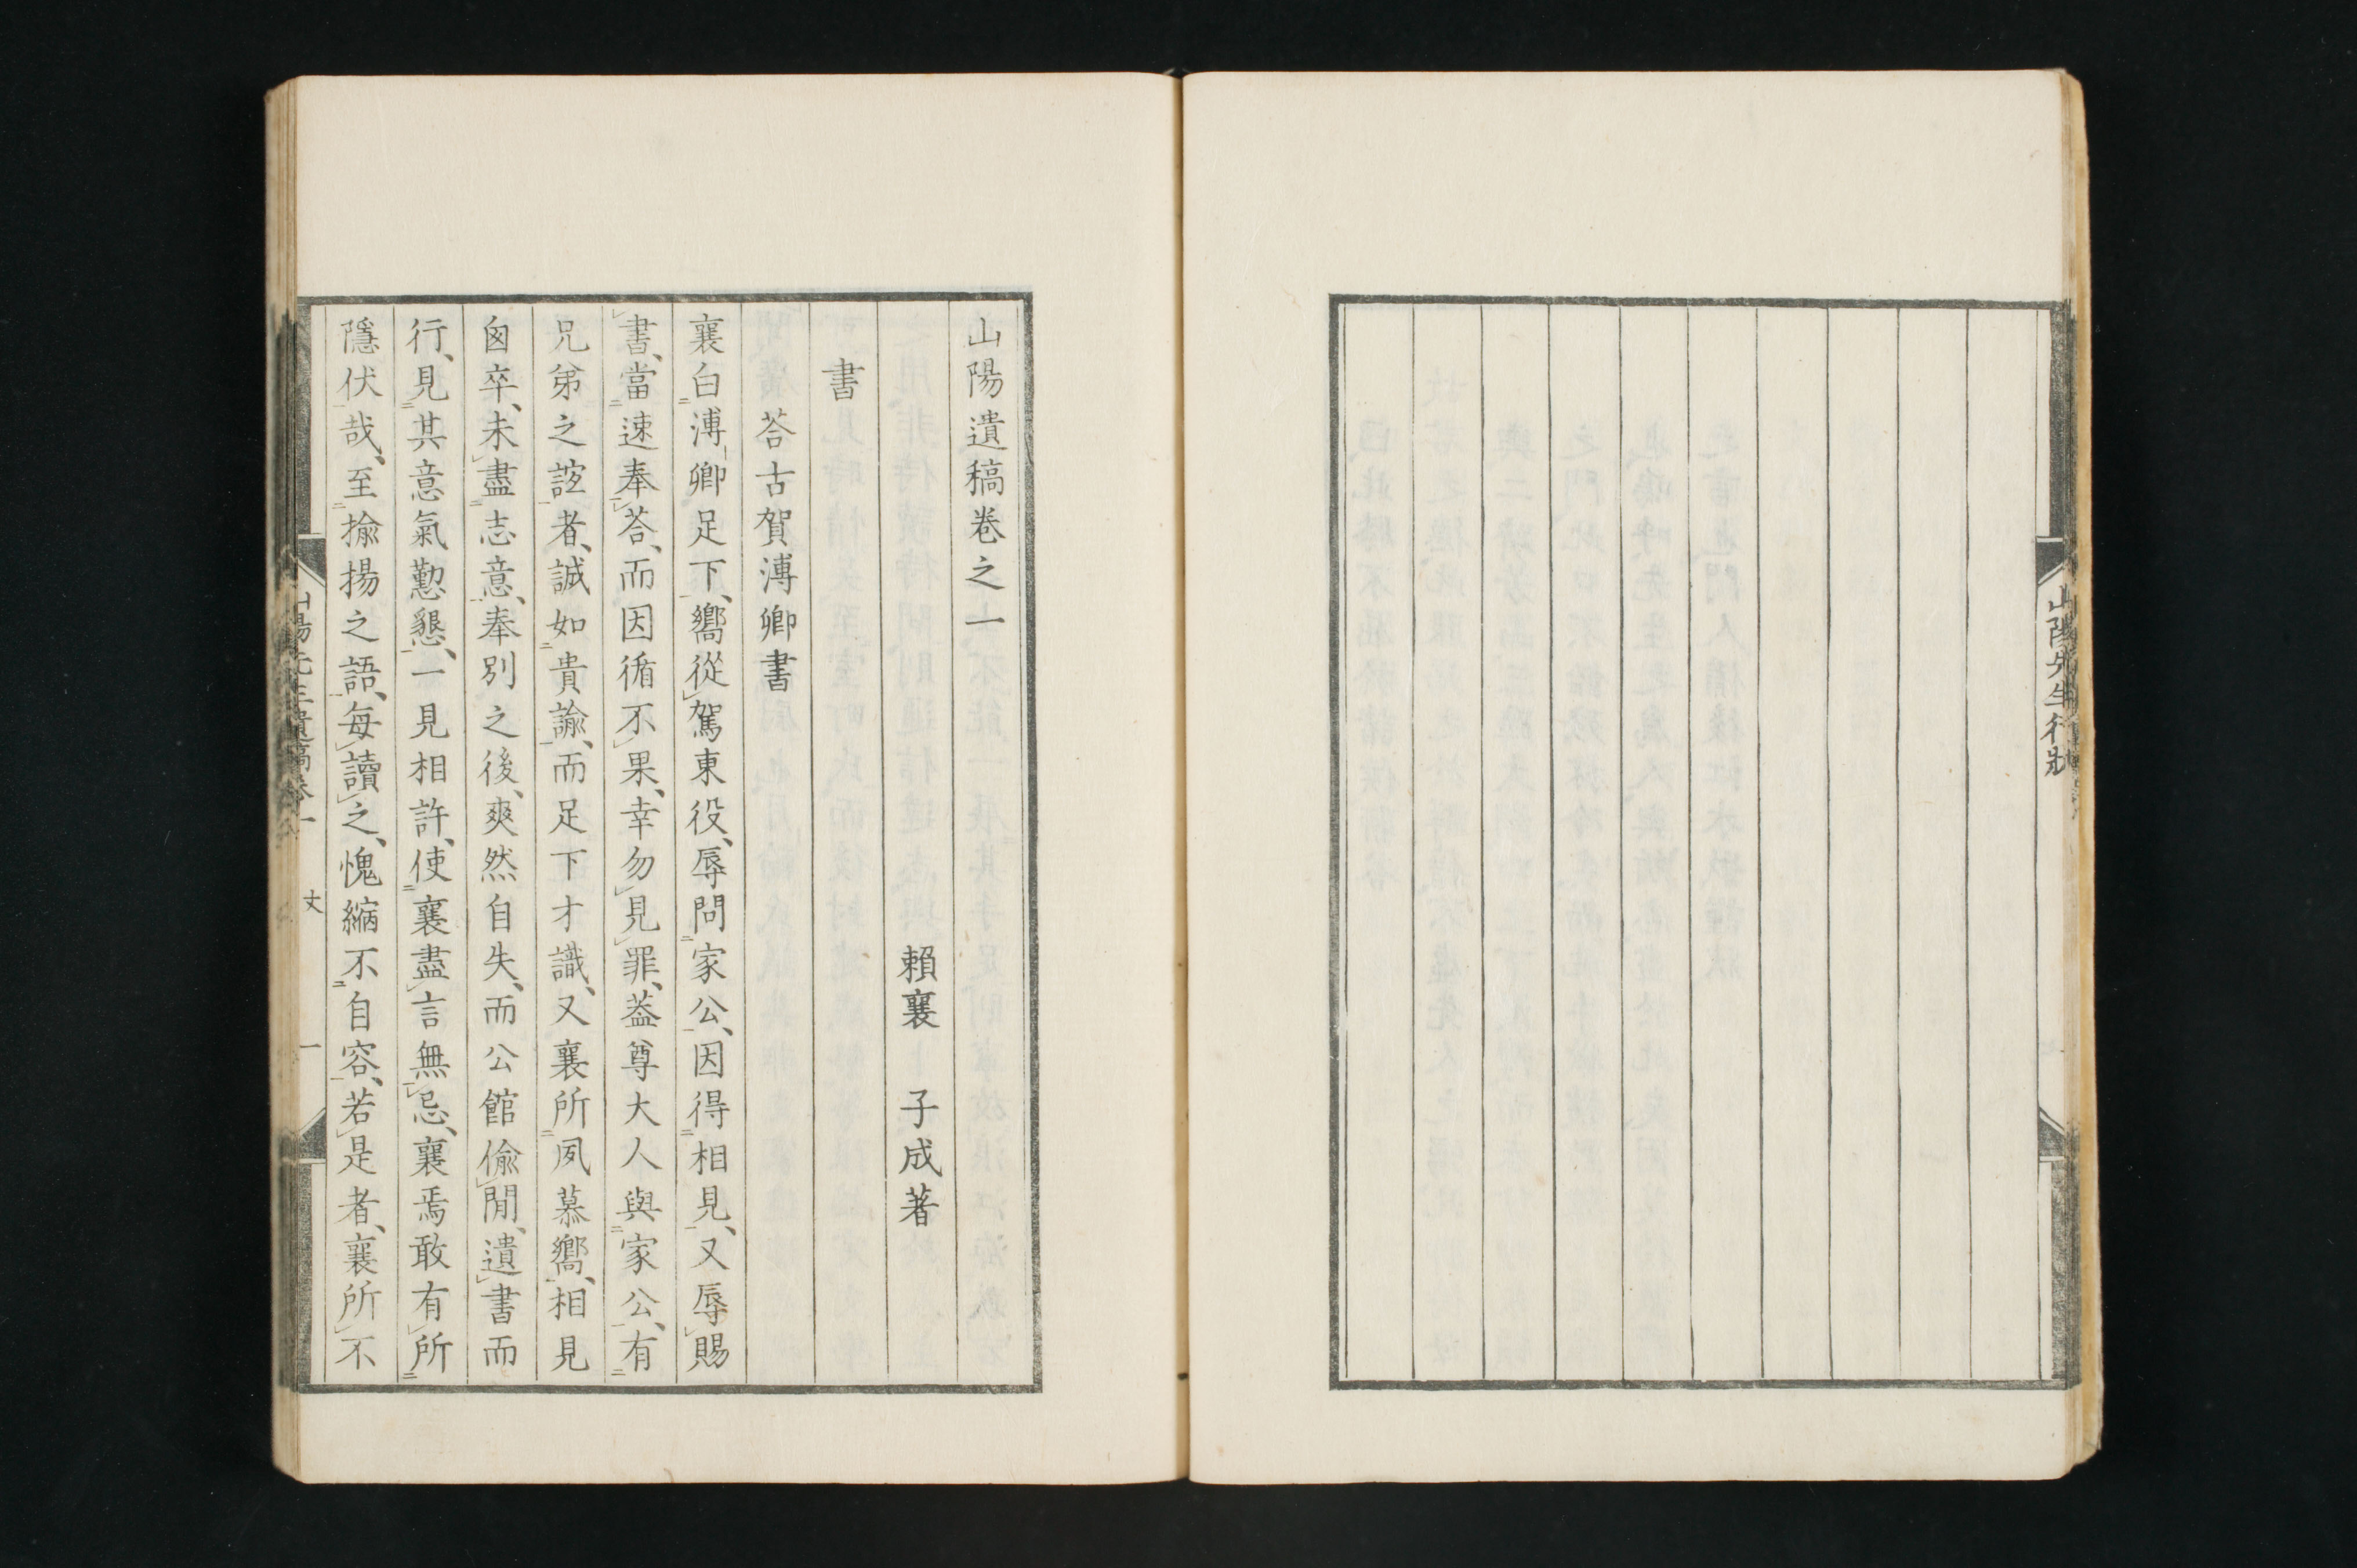 山陽先生行狀
山陽遺稿卷之一
賴襄 子成著
書
荅古賀溥卿書
襄白溥卿足下、嚮從駕東役、辱問家公、因得相見、又辱賜
書、當速奉荅、而因循不果、幸勿見罪、葢尊大人與家公、有
兄弟之誼者、誠如貴諭、而足下才識、又襄所夙慕嚮、相見
匆卒、未盡志意、奉別之後、爽然自失、而公館偷閒、遺書而
行、見其意氣懃懇、一見相許、使襄盡言無忌、襄焉敢有所
隱伏哉、至揄揚之語、每讀之、愧縮不自容、若是者、襄所不
山陽先生遺稿卷一
文
一